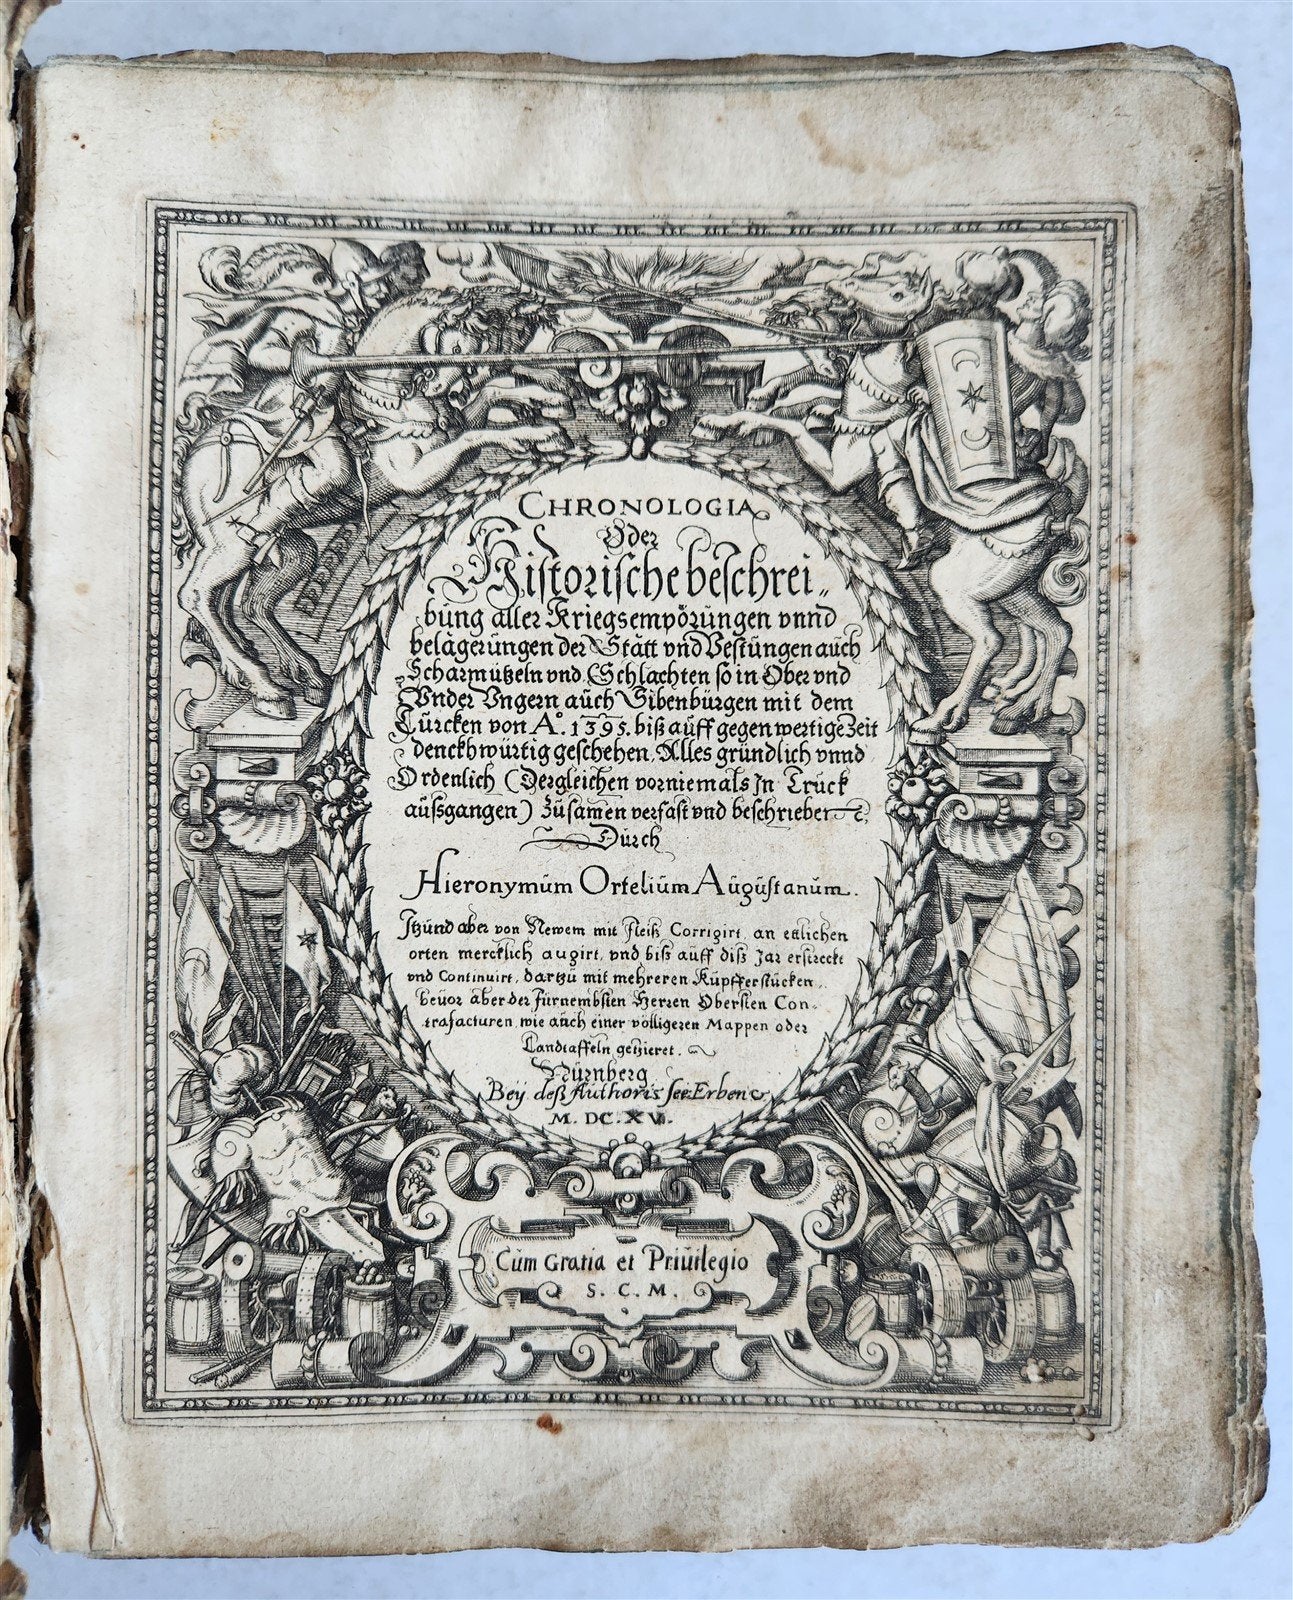 CHRONOLOGIA
Oder
Historische beschrei„
bung aller Kriegsempörungen vnnd
belägerungen der Stätt vnd Vestungen auch
Scharmützeln vnd Schlachten so in Ober vnd
Vnder Vngern auch Sibenbürgen mit dem
Türcken von A°. 1395. biß auff gegenwertige Zeit
denckhwürtig geschehen, Alles gründlich vnnd
Ordenlich (Dergleichen vor niemals Jn Trück
außgangen) Zusamen verfast vnd beschrieben
Durch
Hieronymum Ortelium Augustanum.
Jtzund aber von Newem mit fleiß Corrigirt, an etlichen
orten mercklich augirt, vnd biß auff diß Jar erstreckt
vnd Continuirt, dartzu mit mehreren Kupfferstücken,
beuor aber der fürnembsten Herren Obersten Con-
trafacturen, wie auch einer völligeren Mappen oder
Landtaffeln getzieret.
Nürnberg
Bey deß Authoris see: Erben
M. DC. XV.
Cum Gratia et Priuilegio
S. C. M.